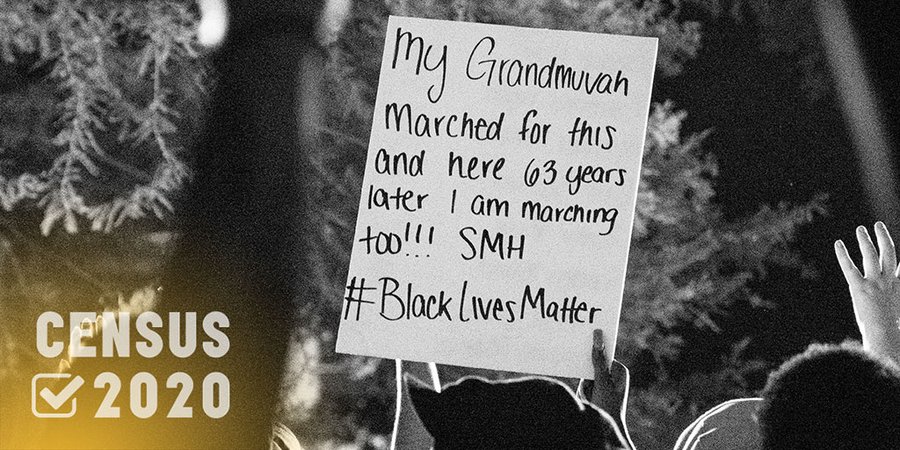 My Grandmuvah
marched for this
and here 63 years
later I am marching
too!!! SMH
#BlackLivesMatter
CENSUS
2020